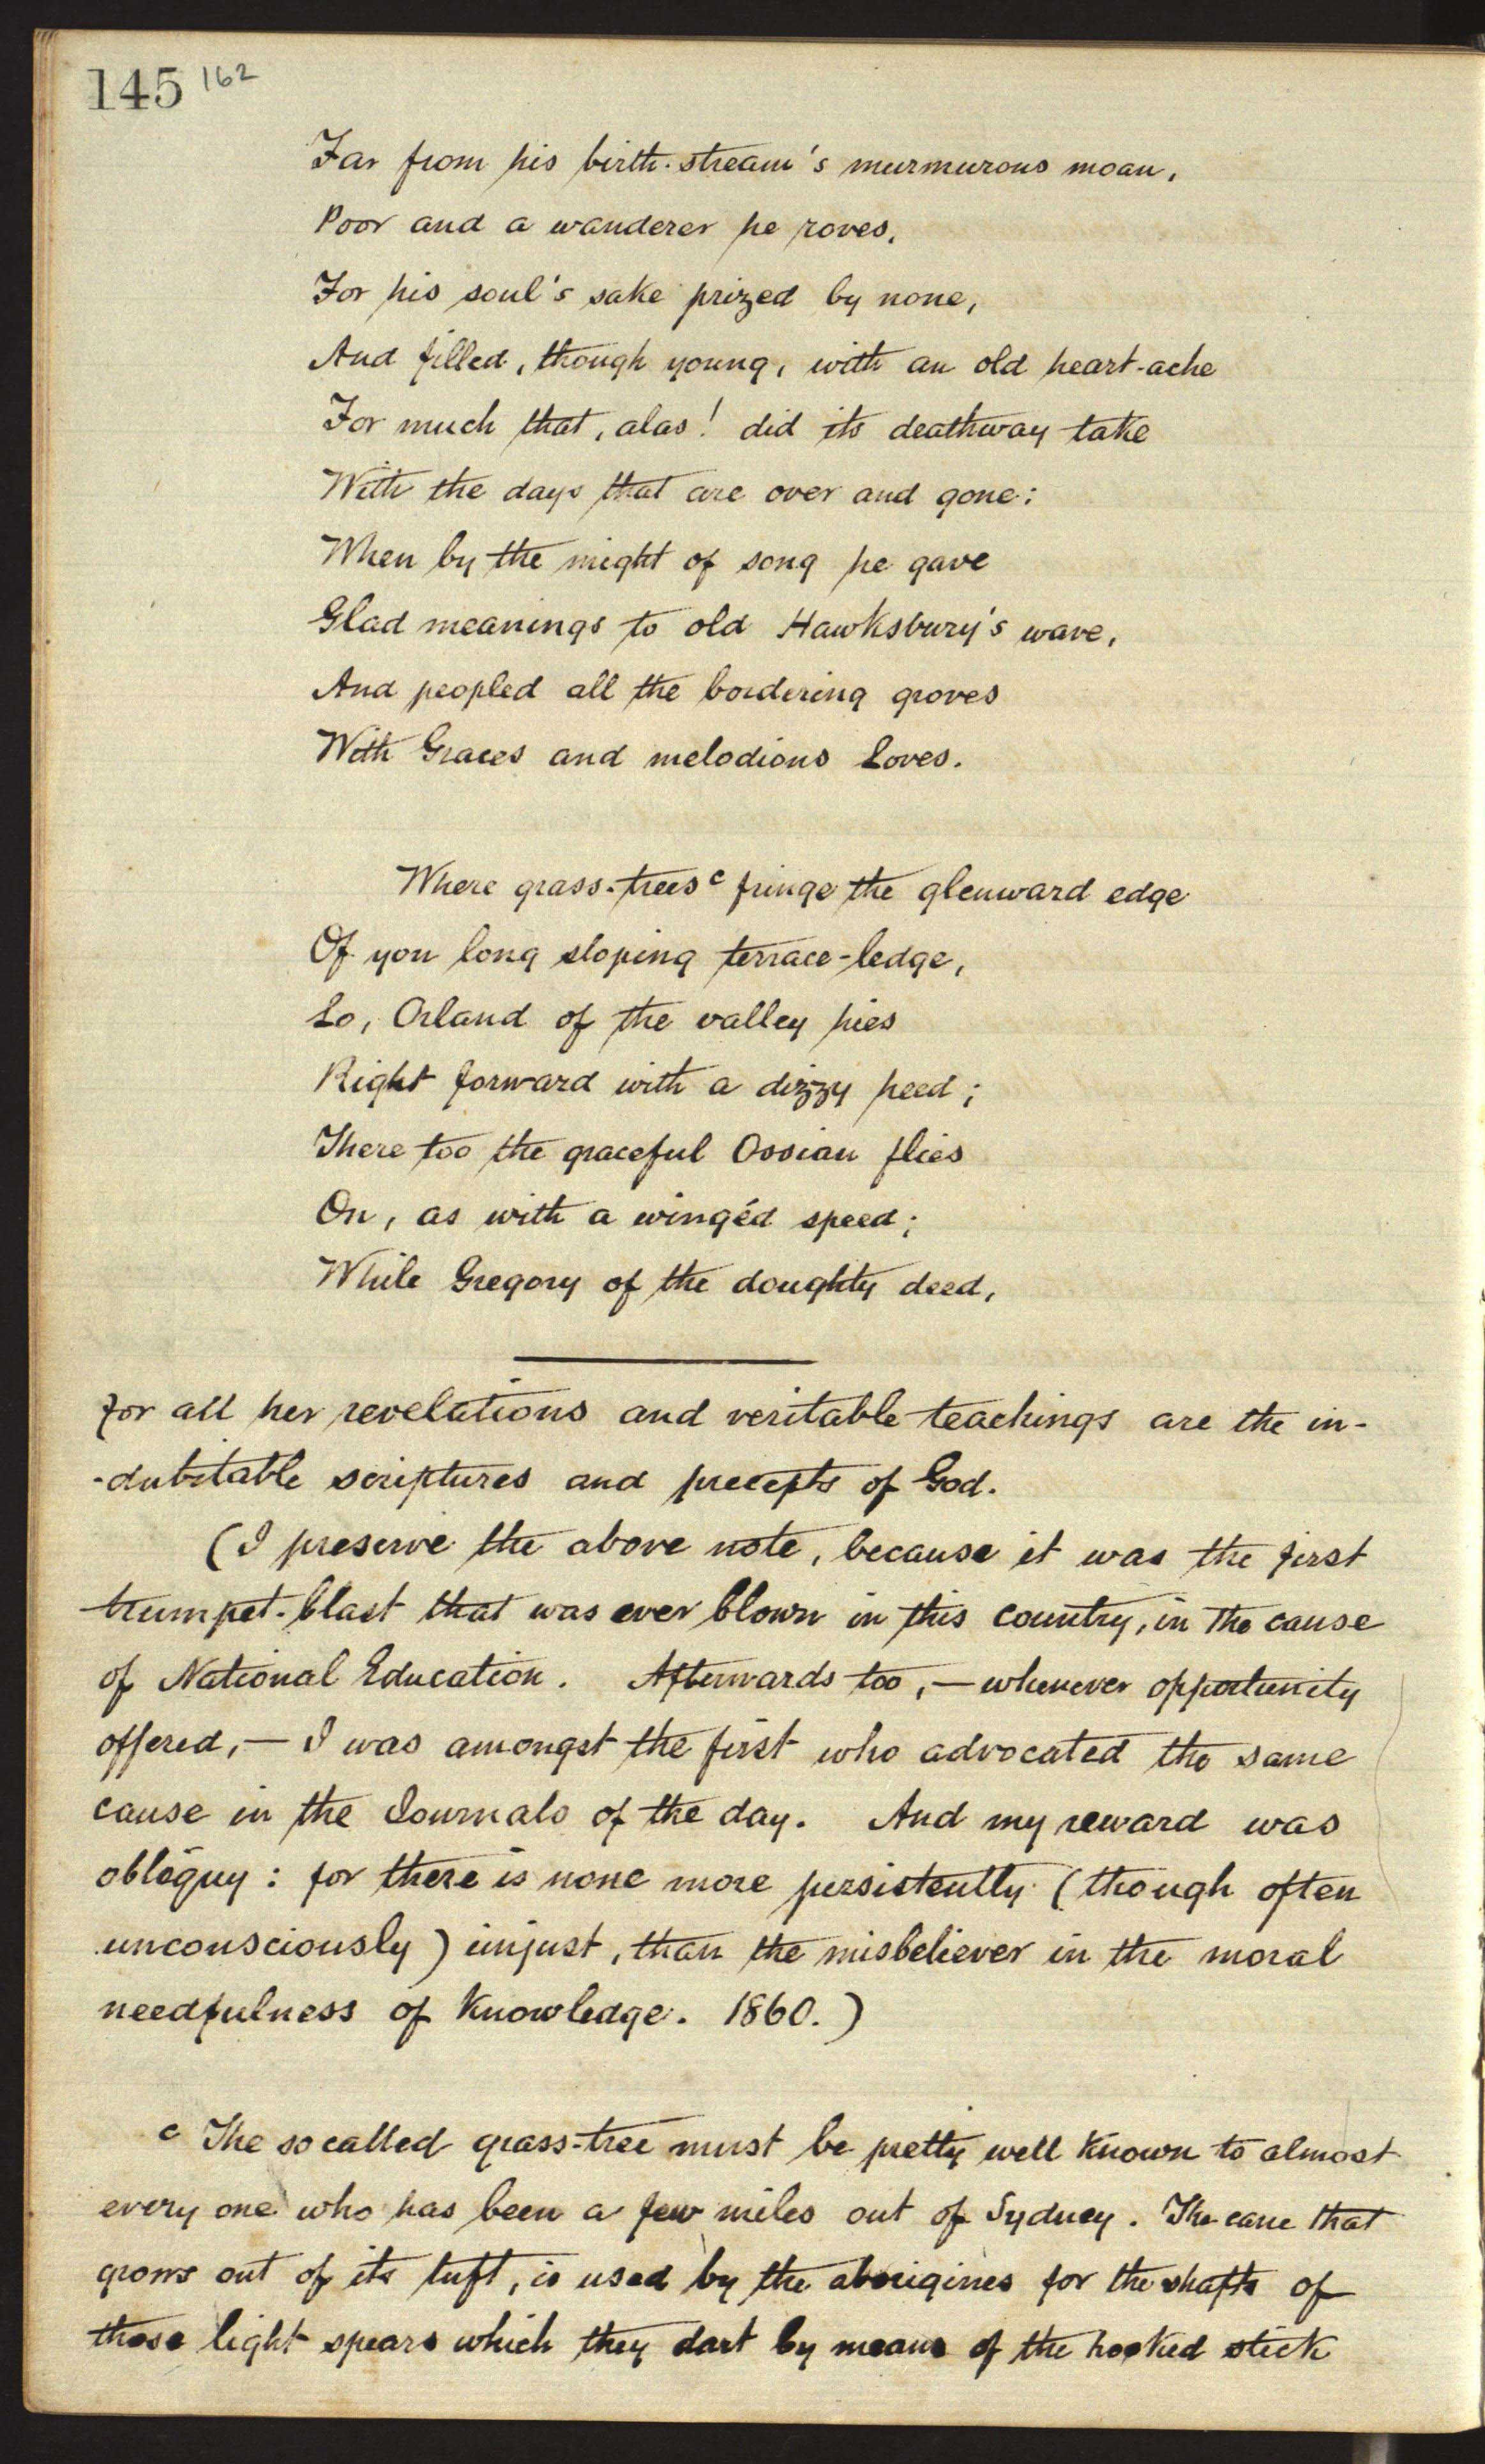 145 162
Far from his birth-stream's murmurous moan,
Poor and a wanderer he roves,
For his soul's sake prized by none,
And filled, though young, with an old heart-ache
For much that, alas! did its deathway take
With the days that are over and gone:
When by the might of song he gave
Glad meanings to old Hawksbury's wave,
And peopled all the bordering groves
With Graces and melodious Loves.
Where grass-trees c fringe the glenward edge
Of yon long sloping terrace-ledge,
Lo, Orland of the valley hies
Right forward with a dizzy heed;
There too the graceful Ossian flies
On, as with a wingéd speed;
While Gregory of the doughty deed,
for all her revelations and veritable teachings are the in-
-dubitable scriptures and precepts of God.
(I preserve the above note, because it was the first
trumpet-blast that was ever blown in this country, in the cause
of National Education. Afterwards too,—whenever opportunity
offered,—I was amongst the first who advocated the same
cause in the Journals of the day. And my reward was
obloquy: for there is none more persistently (though often
unconsciously) unjust, than the misbeliever in the moral
needfulness of Knowledge. 1860.)
c The so called grass-tree must be pretty well known to almost
every one who has been a few miles out of Sydney. The cane that
grows out of its tuft, is used by the aborigines for the shafts of
those light spears which they dart by means of the hooked stick